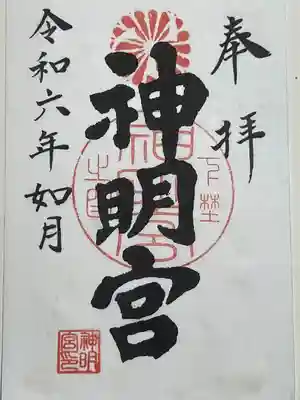 奉拝
神明宮
令和六年如月
下野
神明宮印